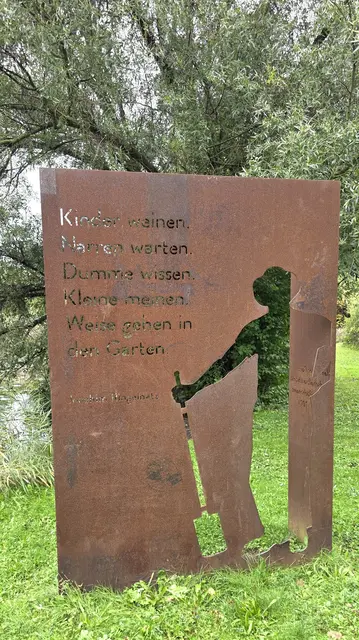 Kinder weinen.
Narren warten.
Dumme wissen.
Kleine meinen.
Weise gehen in
den Garten.